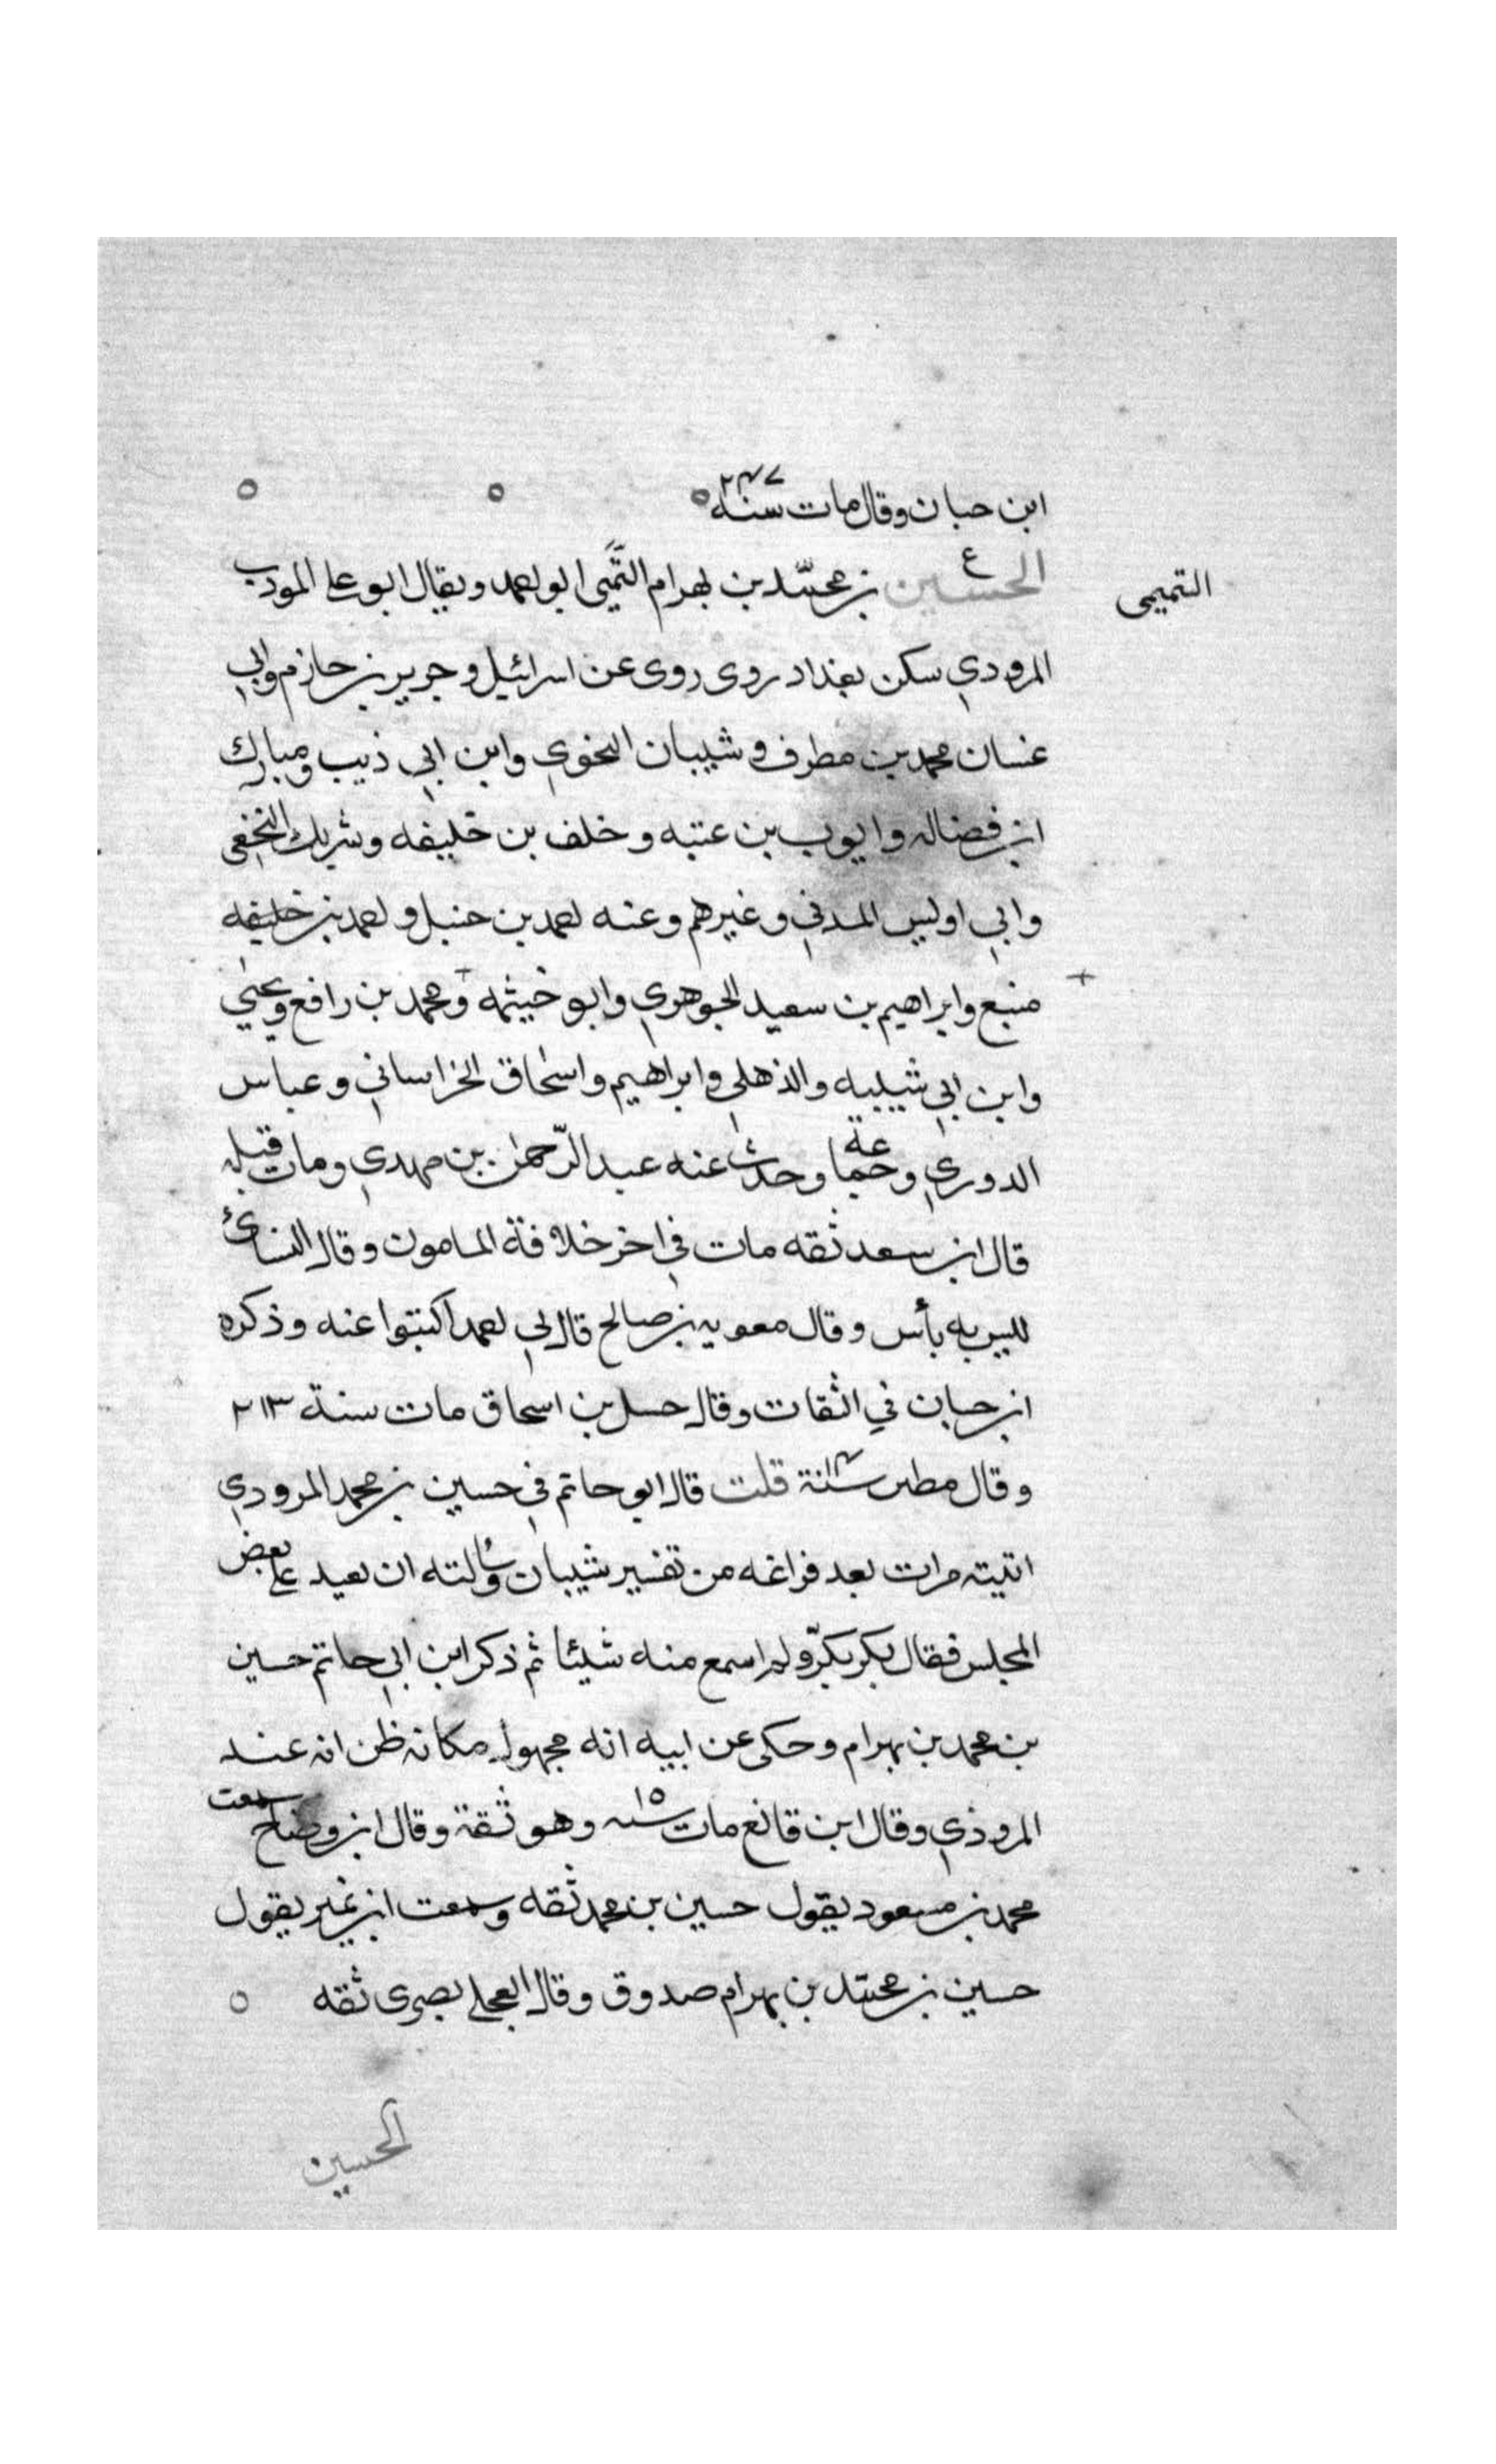 ابن حبان وقال مات سنة ٢٤٧ ه ه ه
الحسين ع بن محمد بن بهرام التّميمي ابو احمد ويقال ابو على المودب
التميمى
المرودي سكن بغداد روى روى عن اسرائيل وجرير بن حازم وابي
غسان محمد بن مطرف وشيبان النحوي وابن ابي ذيب ومبارك
ابن فضاله وايوب بن عتبه وخلف بن خليفه وشريك النخعي
وابي اوليس المدني وغيرهم وعنه احمد بن حنبل واحمد بن خليفه
منبع وابراهيم بن سعيد الجوهري وابو خيثمه ومحمد بن رافع ويحيى
وابن ابي شيبه والذهلي وابراهيم واسحاق الخراساني وعباس
الدوري وجماعة وحدث عنه عبد الرّحمن بن مهدي ومات قبله
قال ابن سعد ثقه مات في اخر خلافة المامون وقال النسائ
ليس به بأس وقال معويه بن صالح قال لي احمد اكتبوا عنه وذكره
ابن حبان في الثقات وقال حسل بن اسحاق مات سنة ٢١٣
وقال مطين سنة ١٤ قلت قال ابو حاتم في حسين بن محمد المرودي
اتيته مرات بعد فراغه من تفسير شيبان وسألته ان يعيد على بعض
المجلس فقال بكر بكرّ ولم اسمع منه شيئا ثم ذكر ابن ابي حاتم حسين
بن محمد بن بهرام وحكى عن ابيه انه مجهول مكانه ظن انه عند
المروذي وقال ابن قانع مات سنه ١٥ وهو ثقة وقال ابن وضاح سمعت
محمد بن مسعود يقول حسين بن محمد ثقه وسمعت ابن نمير يقول
حسين بن محمد بن بهرام صدوق وقال العجلي بصرى ثقه ه
الحسين